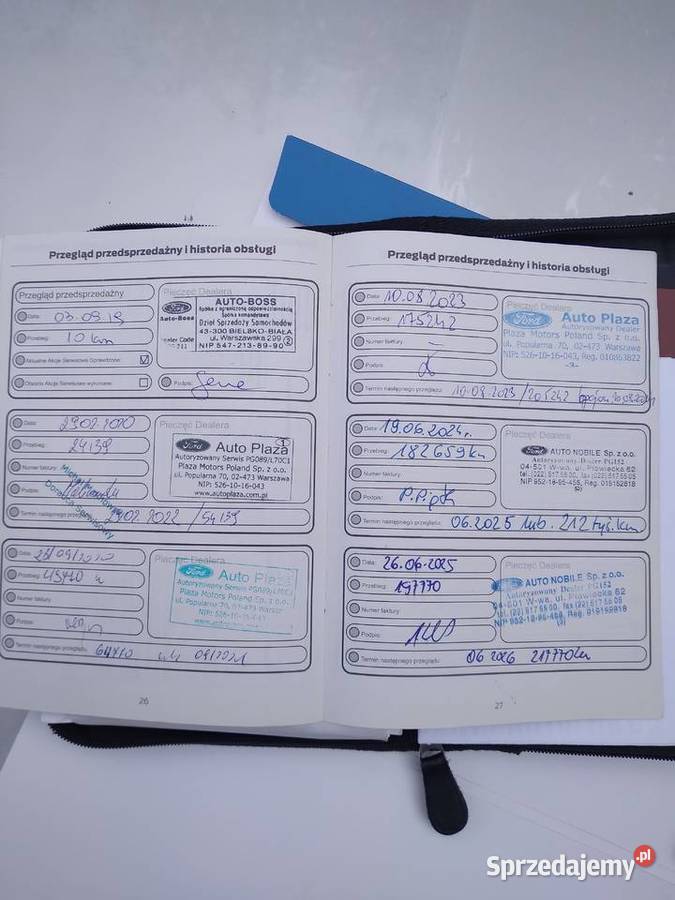 Przegląd przedsprzedażny i historia obsługi
Przegląd przedsprzedażny
Pieczęć Dealera
Data: 03.09.19
Przebieg: 10 km
Aktualne Akcje Serwisowe Sprawdzone:
Obszola Akcje Serwisowe wykonane:
Podpis:
Ford
Auto-Boss
AUTO-BOSS
Spółka z ograniczoną odpowiedzialnością
Spółka komandytowa
Dział Sprzedaży Samochodów
43-300 BIELSKO-BIAŁA
ul. Warszawska 299
NIP 547-213-89-90
2
Data: 29.02.2020
Przebieg: 24139
Numer faktury:
Podpis:
Doradca Serwisowy
Termin następnego przeglądu: 02.2022 / 54139
Pieczęć Dealera
1
Ford Auto Plaza
Autoryzowany Serwis PG089/L70C1
Plaza Motors Poland Sp. z o.o.
ul. Popularna 70, 02-473 Warszawa
NIP: 526-10-16-043
www.autoplaza.com.pl
Data:
Przebieg:
Numer faktury
Podpis:
Termin następnego przeglądu: 09/2021
Pieczęć Dealera
Ford Auto Plaza
Autoryzowany Serwis PG089/L70C1
Plaza Motors Poland Sp. z o.o.
ul. Popularna 70, 02-473 Warszawa
NIP: 526-10-16-043
26
Przegląd przedsprzedażny i historia obsługi
Data: 10.08.2023
Przebieg: 175242
Numer faktury: –
Podpis:
Termin następnego przeglądu: / 205242
Pieczęć Dealera
Ford Auto Plaza
Autoryzowany Dealer
Plaza Motors Poland Sp. z o.o.
ul. Popularna 70, 02-473 Warszawa
NIP: 526-10-16-043, Reg. 010863822
Data: 19.06.2024r.
Przebieg: 182659km
Numer faktury:
Podpis:
Termin następnego przeglądu: 06.2025 lub. 212 tyś. km
Pieczęć Dealera
Ford AUTO NOBILE Sp. z o.o.
Autoryzowany Dealer PG152
04-501 W-wa, ul. Płowiecka 62
tel. (022) 517 55 00, fax (022) 517 55 05
NIP 952-18-95-455, Reg. 015152818
Data: 26.06.2025
Przebieg: 197770
Numer faktury
Podpis:
Termin następnego przeglądu: 06 2026 217770km
Pieczęć Dealera
Ford AUTO NOBILE Sp. z o.o.
Autoryzowany Dealer PG152
04-501 W-wa, ul. Płowiecka 62
27
Sprzedajemy.pl